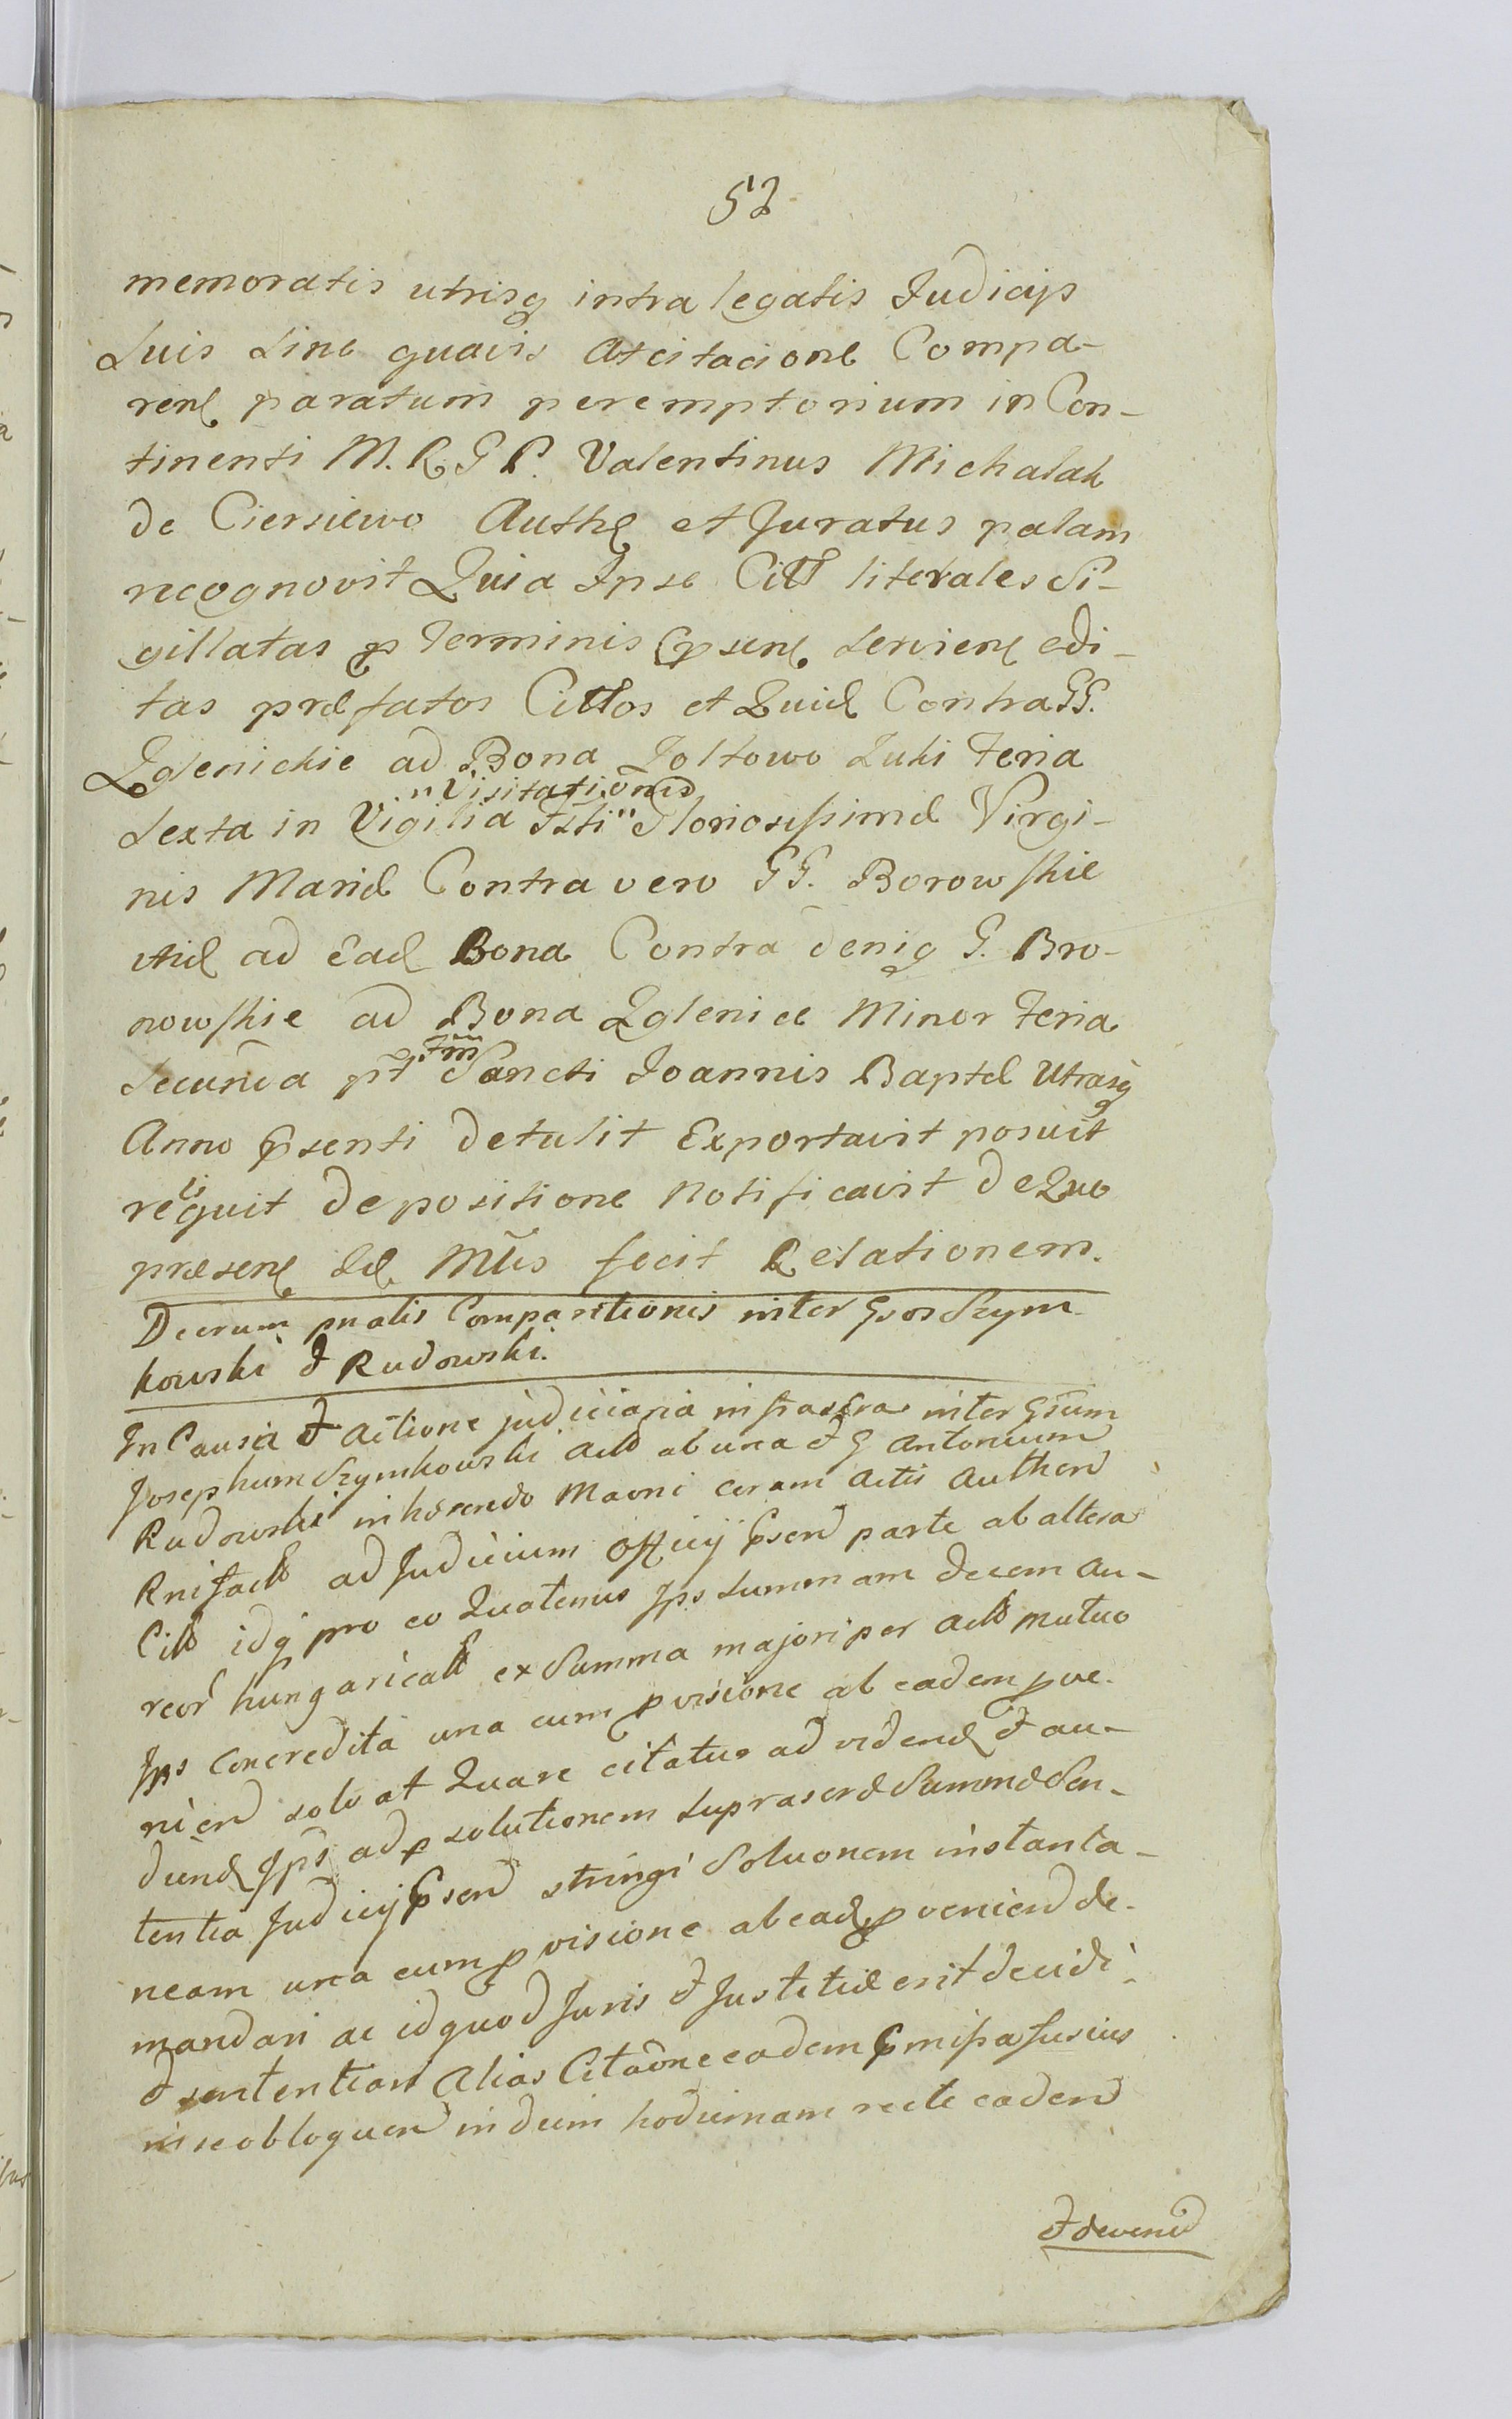 52
memoratis utrisq intra legatis Judicijs
Suis Sine quavis Atcitacione Compa-
ren paratum peremptorium in Con-
tinenti M. R. G P. Valentinus Michalak
de Ciersiewo Auth et Juratus palam
recognovit Quia Ipse Citt literales Si-
gillatas p Terminis psen servien edi-
tas præfatos Cittos et Quid Contra GG.
Zglenickie ad Bona Zoltowo Luki Feria
"Visitationis
Sexta in Vigilia Fsti" Gloriosissimæ Virgi-
nis Mariæ Contra vero GG. Borowskie
itid ad Ead Bona Contra deniq G. Bro-
nowskie ad Bona Zglenice Minor Feria
Fm
Secunda pt Sancti Joannis Baptæ Utrasq
Anno psenti detulit Exportavit posuit
li
requit depositione Notificavit de Quo
præsen Sæ Mtis fecit Relationem.
Decrum pnalis Comparitionis inter Gsos Szym-
kowski et Rudowski.
In Causa et Actione judiciaria infrascra inter Gsum
Josephum Szymkowski Act ab una et G Antonium
Rudowski inhærendo Mavni coram Actis Authen
Rnifact ad Judicium Officij Psen parte ab altera
Citt idq pro eo Quatenus Ips Summam decem Au-
reor hungaricall ex Summa majori per Act mutuo
Ips Concredita una cum pvisione ab eadem pve-
nien solvat Quare citatus ad viden et au-
dien Ips ad psolutionem suprascræ Summæ Sen-
tentia Judicij Psen stringi Soluonem instanta-
neam una cum pvisione ab ead pvenien de-
mandari ac id quod Juris et Justitiæ erit decidi
et sententiari Alias Citaõne eadem pmissa fusius
in se obloquen in diem hodiernam recte caden
et deveni